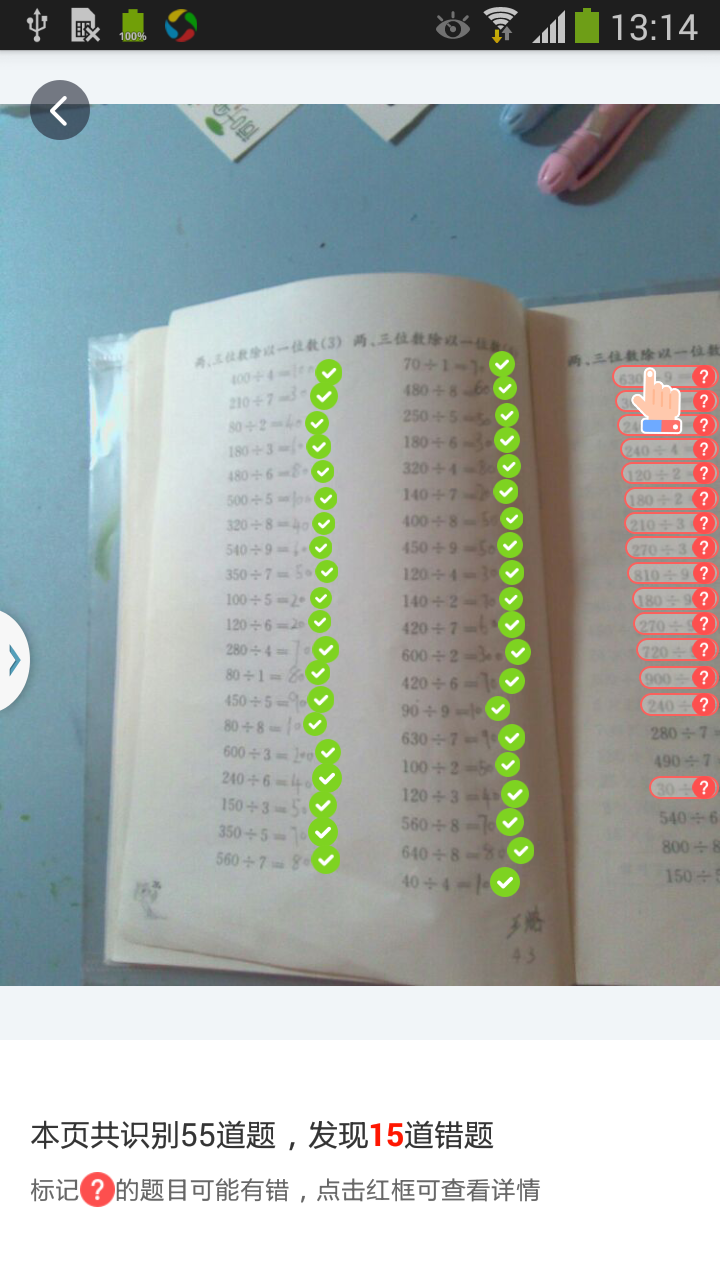 100%
13:14
两、三位数除以一位数(3)
400÷4=100
210÷7=30
80÷2=40
180÷3=60
480÷6=80
500÷5=100
320÷8=40
540÷9=60
350÷7=50
100÷5=20
120÷6=20
280÷4=70
80÷1=80
450÷5=90
80÷8=10
600÷3=200
240÷6=40
150÷3=50
350÷5=70
560÷7=80
两、三位数除以一位数
70÷1=70
480÷8=60
250÷5=50
180÷6=30
320÷4=80
140÷7=20
400÷8=50
450÷9=50
120÷4=30
140÷2=70
420÷7=60
600÷2=300
420÷6=70
90÷9=10
630÷7=90
100÷2=50
120÷3=40
560÷8=70
640÷8=80
40÷4=10
43
两、三位数除以一位数
630÷9
240÷4=
120÷2=
180÷2
210÷3
270÷3
810÷9
180÷9
270÷9
720÷
900÷
240÷
280÷7=
490÷7
30÷
540÷6
800÷8
150÷5
本页共识别55道题，发现15道错题
标记?的题目可能有错，点击红框可查看详情